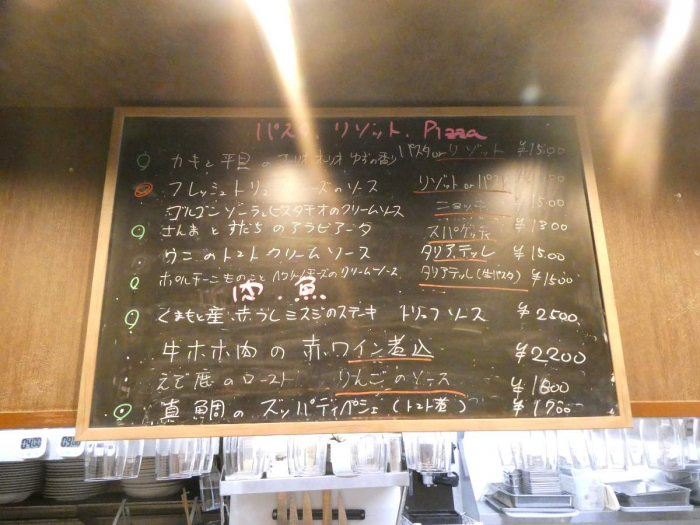 パスタ. リゾット. Pizza
カキと平貝の オリオ ゆずの香り パスタorリゾット ¥1500
フレッシュトリュ ーズのソース リゾット or パスタ
ゴルゴンゾーラとピスタチオのクリームソース ニョッキ 1500
さんまとすだちのアラビアータ スパゲッティ ¥1300
ウニのトマトクリームソース タリアテッレ ¥1500
ポルチーニきのこと のクリームソース タリアテッレ(生パスタ) ¥1500
肉. 魚
くまもと産.赤うしミスジのステーキ トリュフソース ¥2500
牛ホホ肉の赤ワイン煮込 ¥2200
えぞ鹿のロースト りんごのソース ¥1800
真鯛のズッパディペシェ(トマト煮) ¥1700